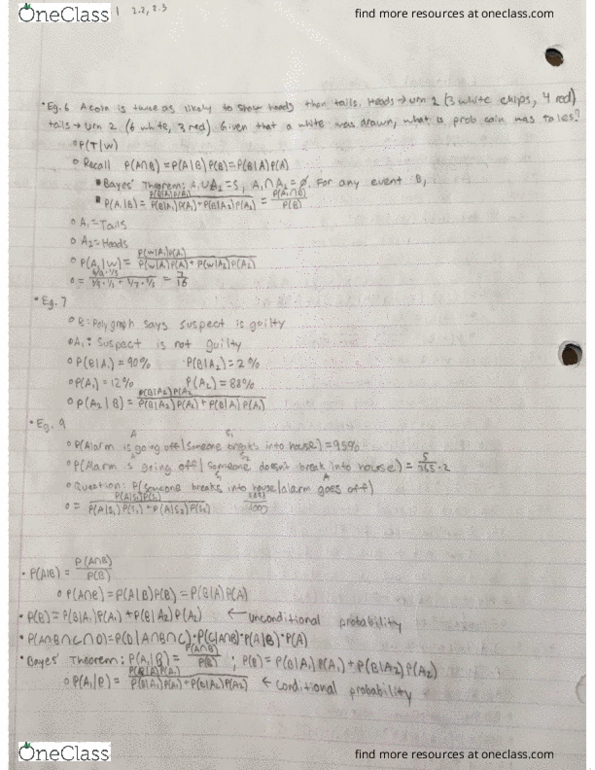 OneClass
find more resources at oneclass.com
2.2, 2.3
• Eg. 6 A coin is twice as likely to show heads than tails. Heads → urn 2 (3 white chips, 4 red)
tails → urn 2 (6 white, 3 red) Given that a white was drawn, what is prob coin was tales?
○ P(T|W)
○ Recall P(A∩B) = P(A|B)P(B) = P(B|A)P(A)
▪ Bayes' Theorem: A₁∪A₂=S, A₁∩A₂=∅. For any event B,
▪ P(A₁|B) = P(B|A₁)P(A₁) / P(B|A₁)P(A₁)+P(B|A₂)P(A₂) = P(A₁∩B) / P(B)
○ A₁=Tails
○ A₂=Heads
○ P(A₁|W) = P(W|A₁)P(A₁) / P(W|A₁)P(A₁)+P(W|A₂)P(A₂)
• Eg. 7
○ B=Polygraph says suspect is guilty
○ A₁: Suspect is not guilty
○ P(B|A₁)=90% P(B|A₂)=2%
○ P(A₁)=12% P(A₂)=88%
○ P(A₂|B) = P(B|A₂)P(A₂) / P(B|A₂)P(A₂)+P(B|A₁)P(A₁)
• Eg. 9
A S₁
○ P(Alarm is going off | Someone breaks into house)=95%
A S₂
○ P(Alarm is going off | Someone doesn't break into house) = 5 / 365·2
S₁ A
○ Question: P(Someone breaks into house | alarm goes off)
○ = P(A|S₁)P(S₁) / P(A|S₁)P(S₁)+P(A|S₂)P(S₂)
• P(A|B) = P(A∩B) / P(B)
○ P(A∩B)=P(A|B)P(B) = P(B|A)P(A)
• P(B)=P(B|A₁)P(A₁)+P(B|A₂)P(A₂) ← unconditional probability
• P(A∩B∩C∩D)=P(D|A∩B∩C)·P(C|A∩B)·P(A|B)·P(A)
• Bayes' Theorem: P(A₁|B) = P(A∩B) / P(B) ; P(B)=P(B|A₁)P(A₁)+P(B|A₂)P(A₂)
○ P(A₁|B) = P(B|A₁)P(A₁) / P(B|A₁)P(A₁)+P(B|A₂)P(A₂) ← conditional probability
OneClass
find more resources at oneclass.com